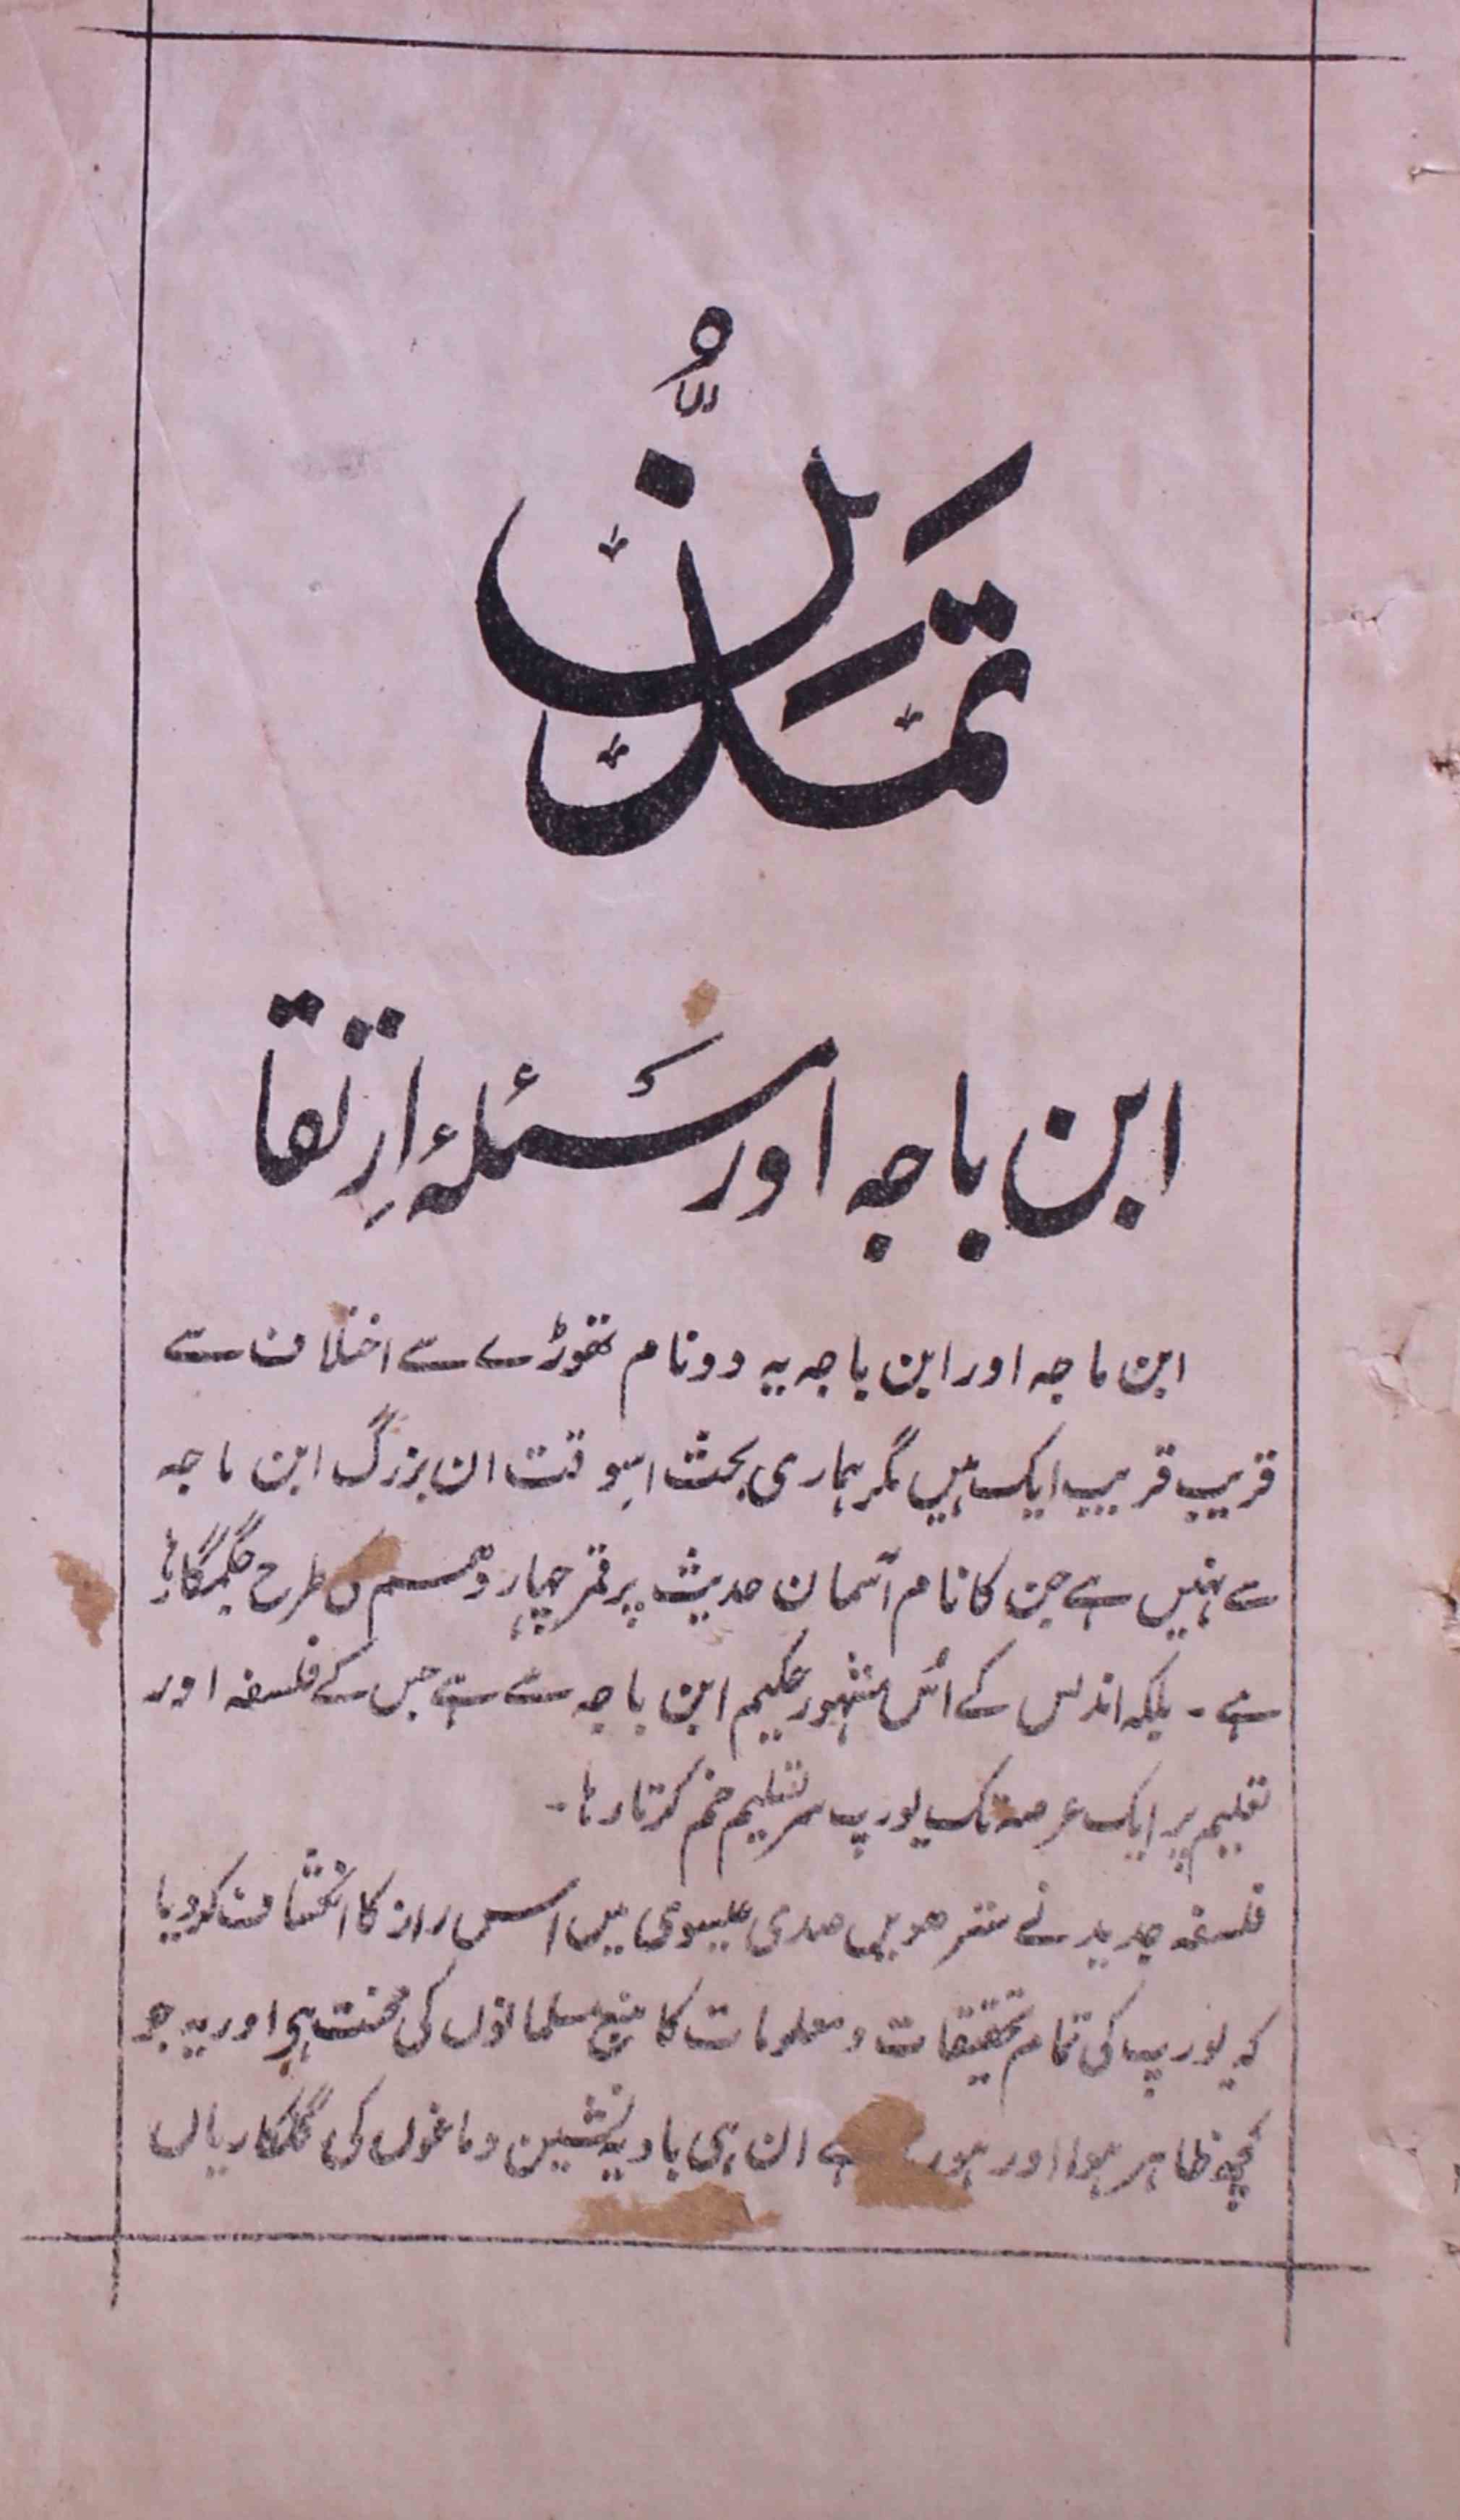 تمدن
ابن باجہ اور مسئلۂ ارتقا
ابن ماجہ اور ابن باجہ یہ دو نام تھوڑے سے اختلاف سے
قریب قریب ایک ہیں مگر ہماری بحث اسوقت ان بزرگ ابن ماجہ
سے نہیں ہے جن کا نام آسمان حدیث پر قمر چہار دہم کی طرح جگمگا رہا
ہے۔ بلکہ اندلس کے اُس مشہور حکیم ابن باجہ سے ہے جس کے فلسفہ اور
تعلیم پر ایک عرصہ تک یورپ سر تسلیم خم کرتا رہا۔
فلسفہ جدید نے سترھویں صدی عیسوی میں اس راز کا انکشاف کر دیا
کہ یورپ کی تمام تحقیقات و معلومات کا منبع مسلمانوں کی محنت ہے اور یہ جو
کچھ ظاہر ہوا اور ہو ہے ان ہی بادیہ نشین دماغوں کی گلکاریاں